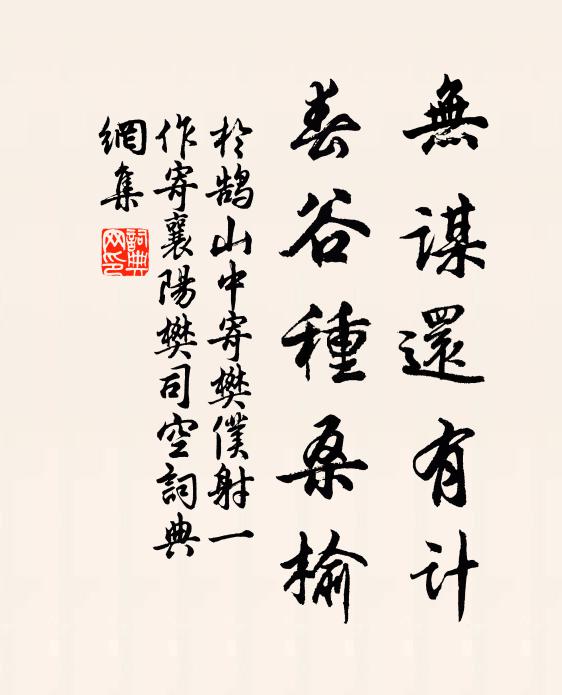 無謀還有計
春谷種桑榆
於鵠山中寄樊僕射一
作寄襄陽樊司空詞典
網集
詞典
网印